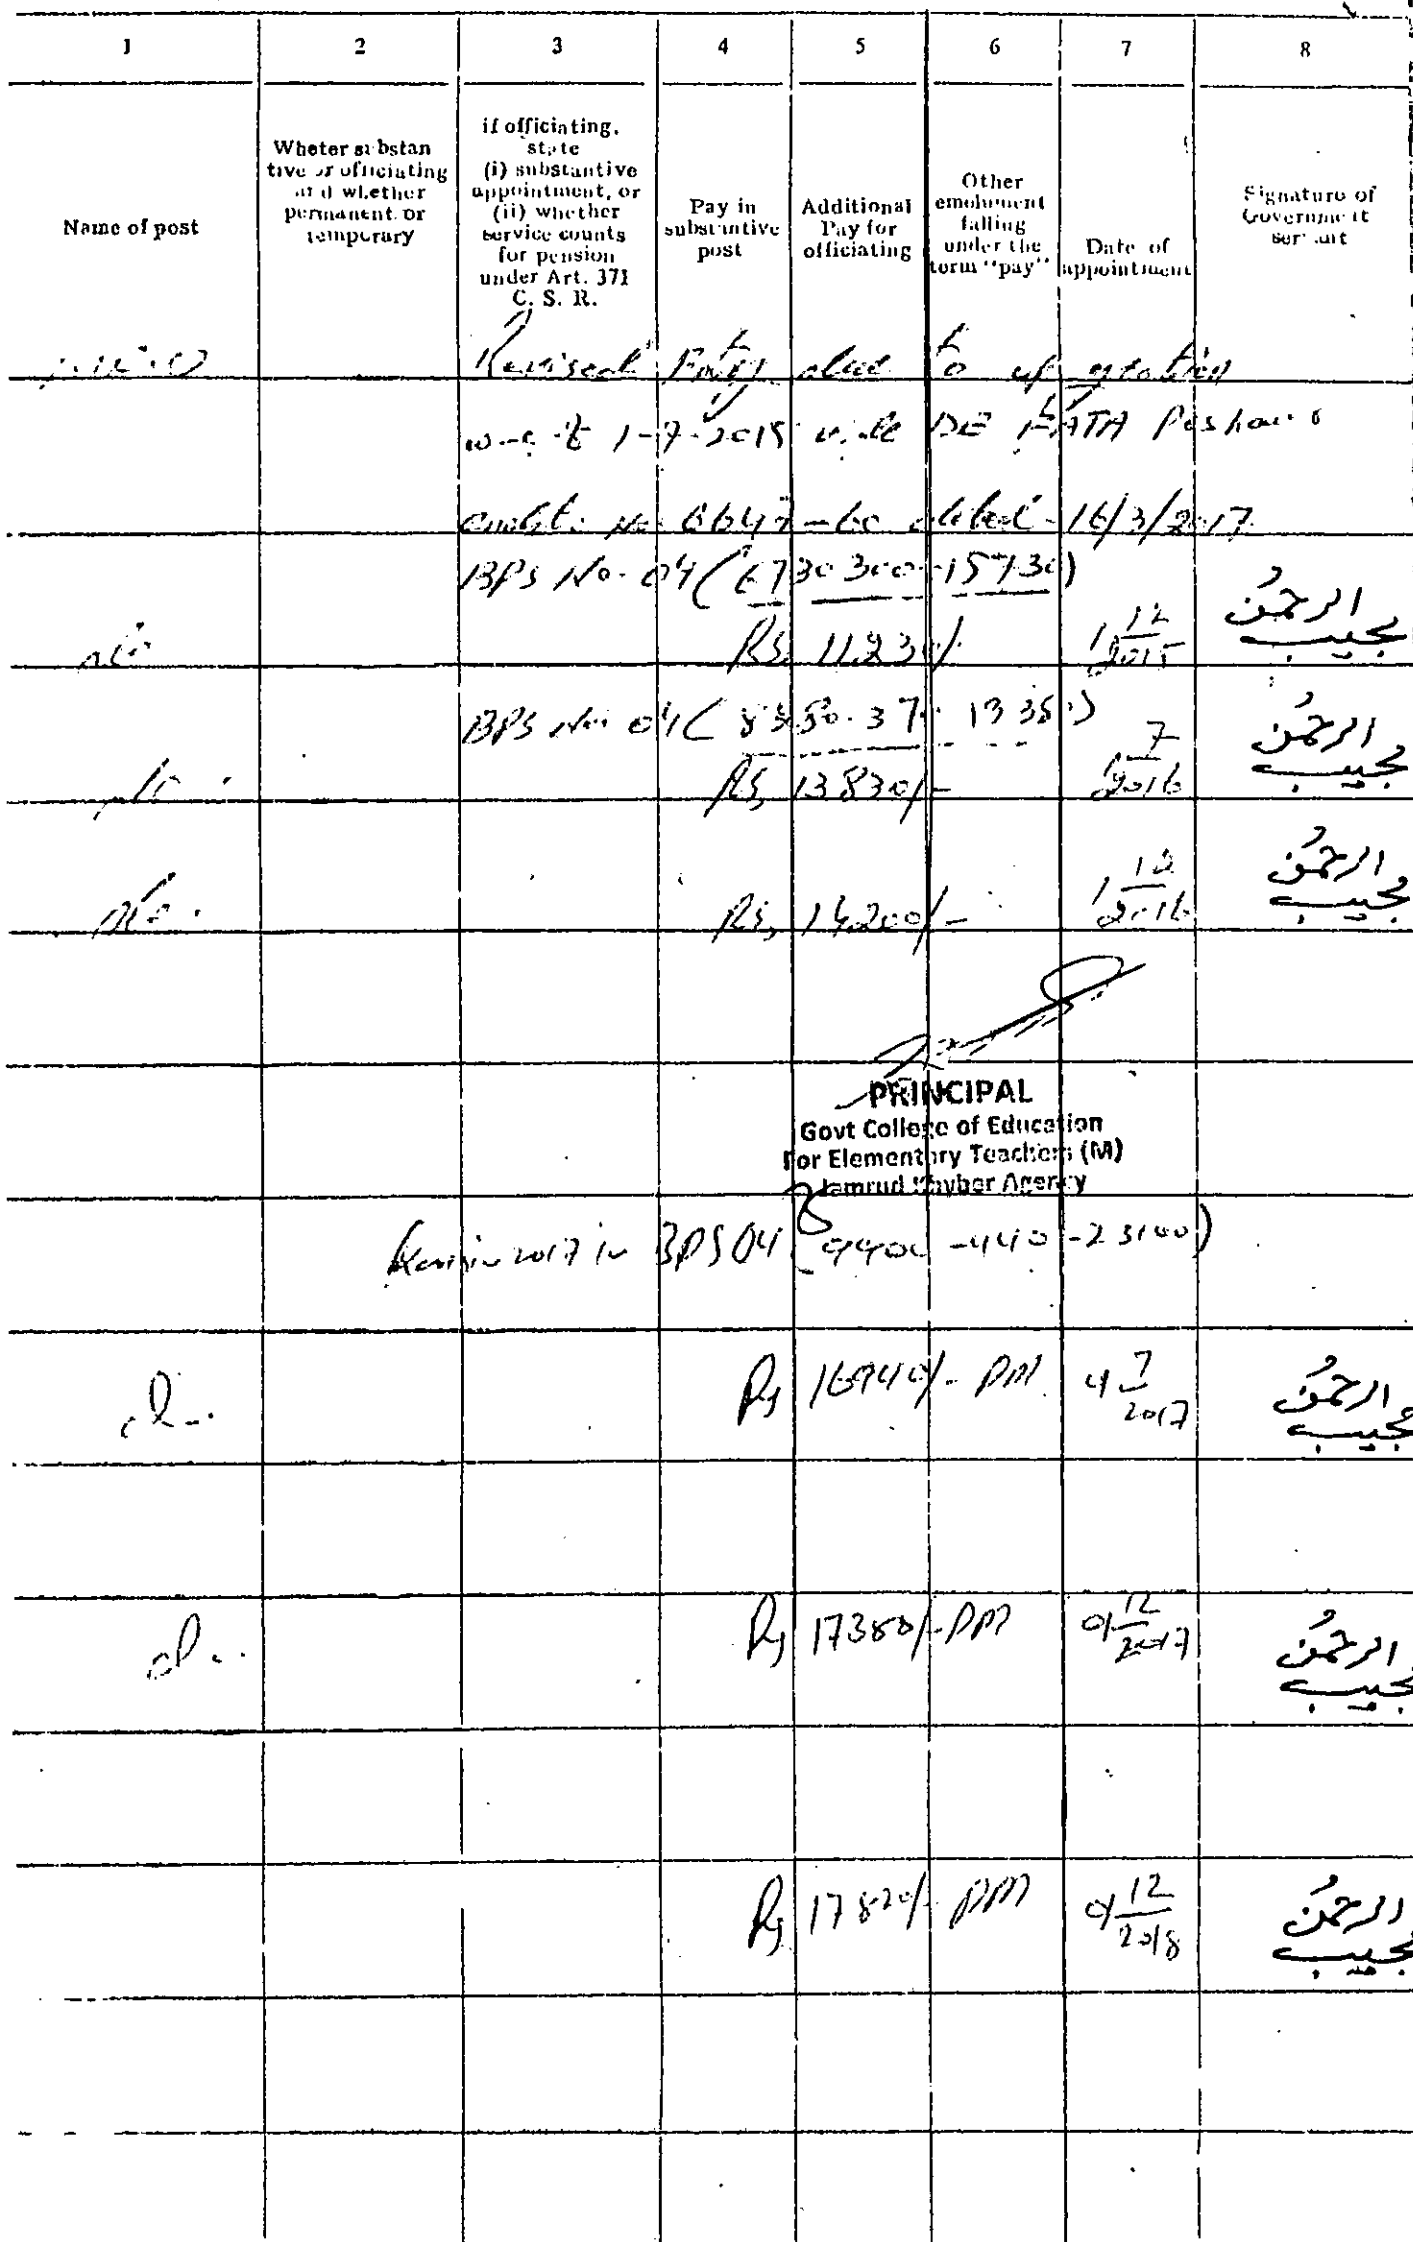 1 2 3 4 5 6 7 8
Name of post
Wheter substan
tive or officiating
and whether
permanent or
temporary
if officiating,
state
(i) substantive
appointment, or
(ii) whether
service counts
for pension
under Art. 371
C. S. R.
Pay in
substantive
post
Additional
Pay for
officiating
Other
emolument
falling
under the
term "pay"
Date of
appointment
Signature of
Government
servant
Revised Entry due to up gradation
w.e.f 1-7-2015 vide DE FATA Peshawar
No 6647-60 dated 16/3/2017
BPS No. 04 (6730 300 15730)
Rs. 11230/- 1 12/2015 مجيب الرحمن
BPS No 04 (
Rs, 13830/- 1 7/2016 مجيب الرحمن
Rs, 14200/- 1 12/2016 مجيب الرحمن
PRINCIPAL
Govt College of Education
For Elementary Teachers (M)
Jamrud Khyber Agency
2017 in BPS 04 (9900 -440 -23100)
Rs 16940/- PM 7/2017 مجيب الرحمن
Rs 17380/- PM 01 12/2017 مجيب الرحمن
Rs 17820/- PM 01 12/2018 مجيب الرحمن